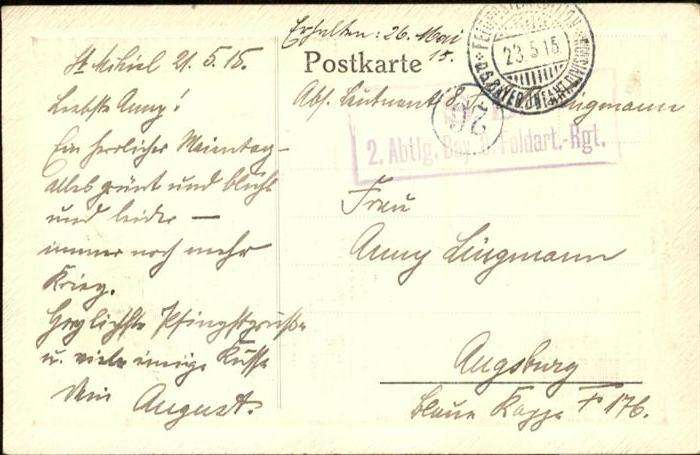 St Mihiel 21.5.15.
Liebste Anny!
Ein herrlicher Maientag –
alles grünt und blüht
und leider –
immer noch mehr
Krieg.
Herzlichste Pfingstgrüße
u. viele innige Küsse
Dein August.
Erhalten: 26. Mai
15.
Postkarte
Abs. Leutnant Lingmann
23.5.15
2. Abtlg. Bay. Feldart.-Rgt.
Frau
Anny Lingmann
Augsburg
Blaue Kappe F 176.